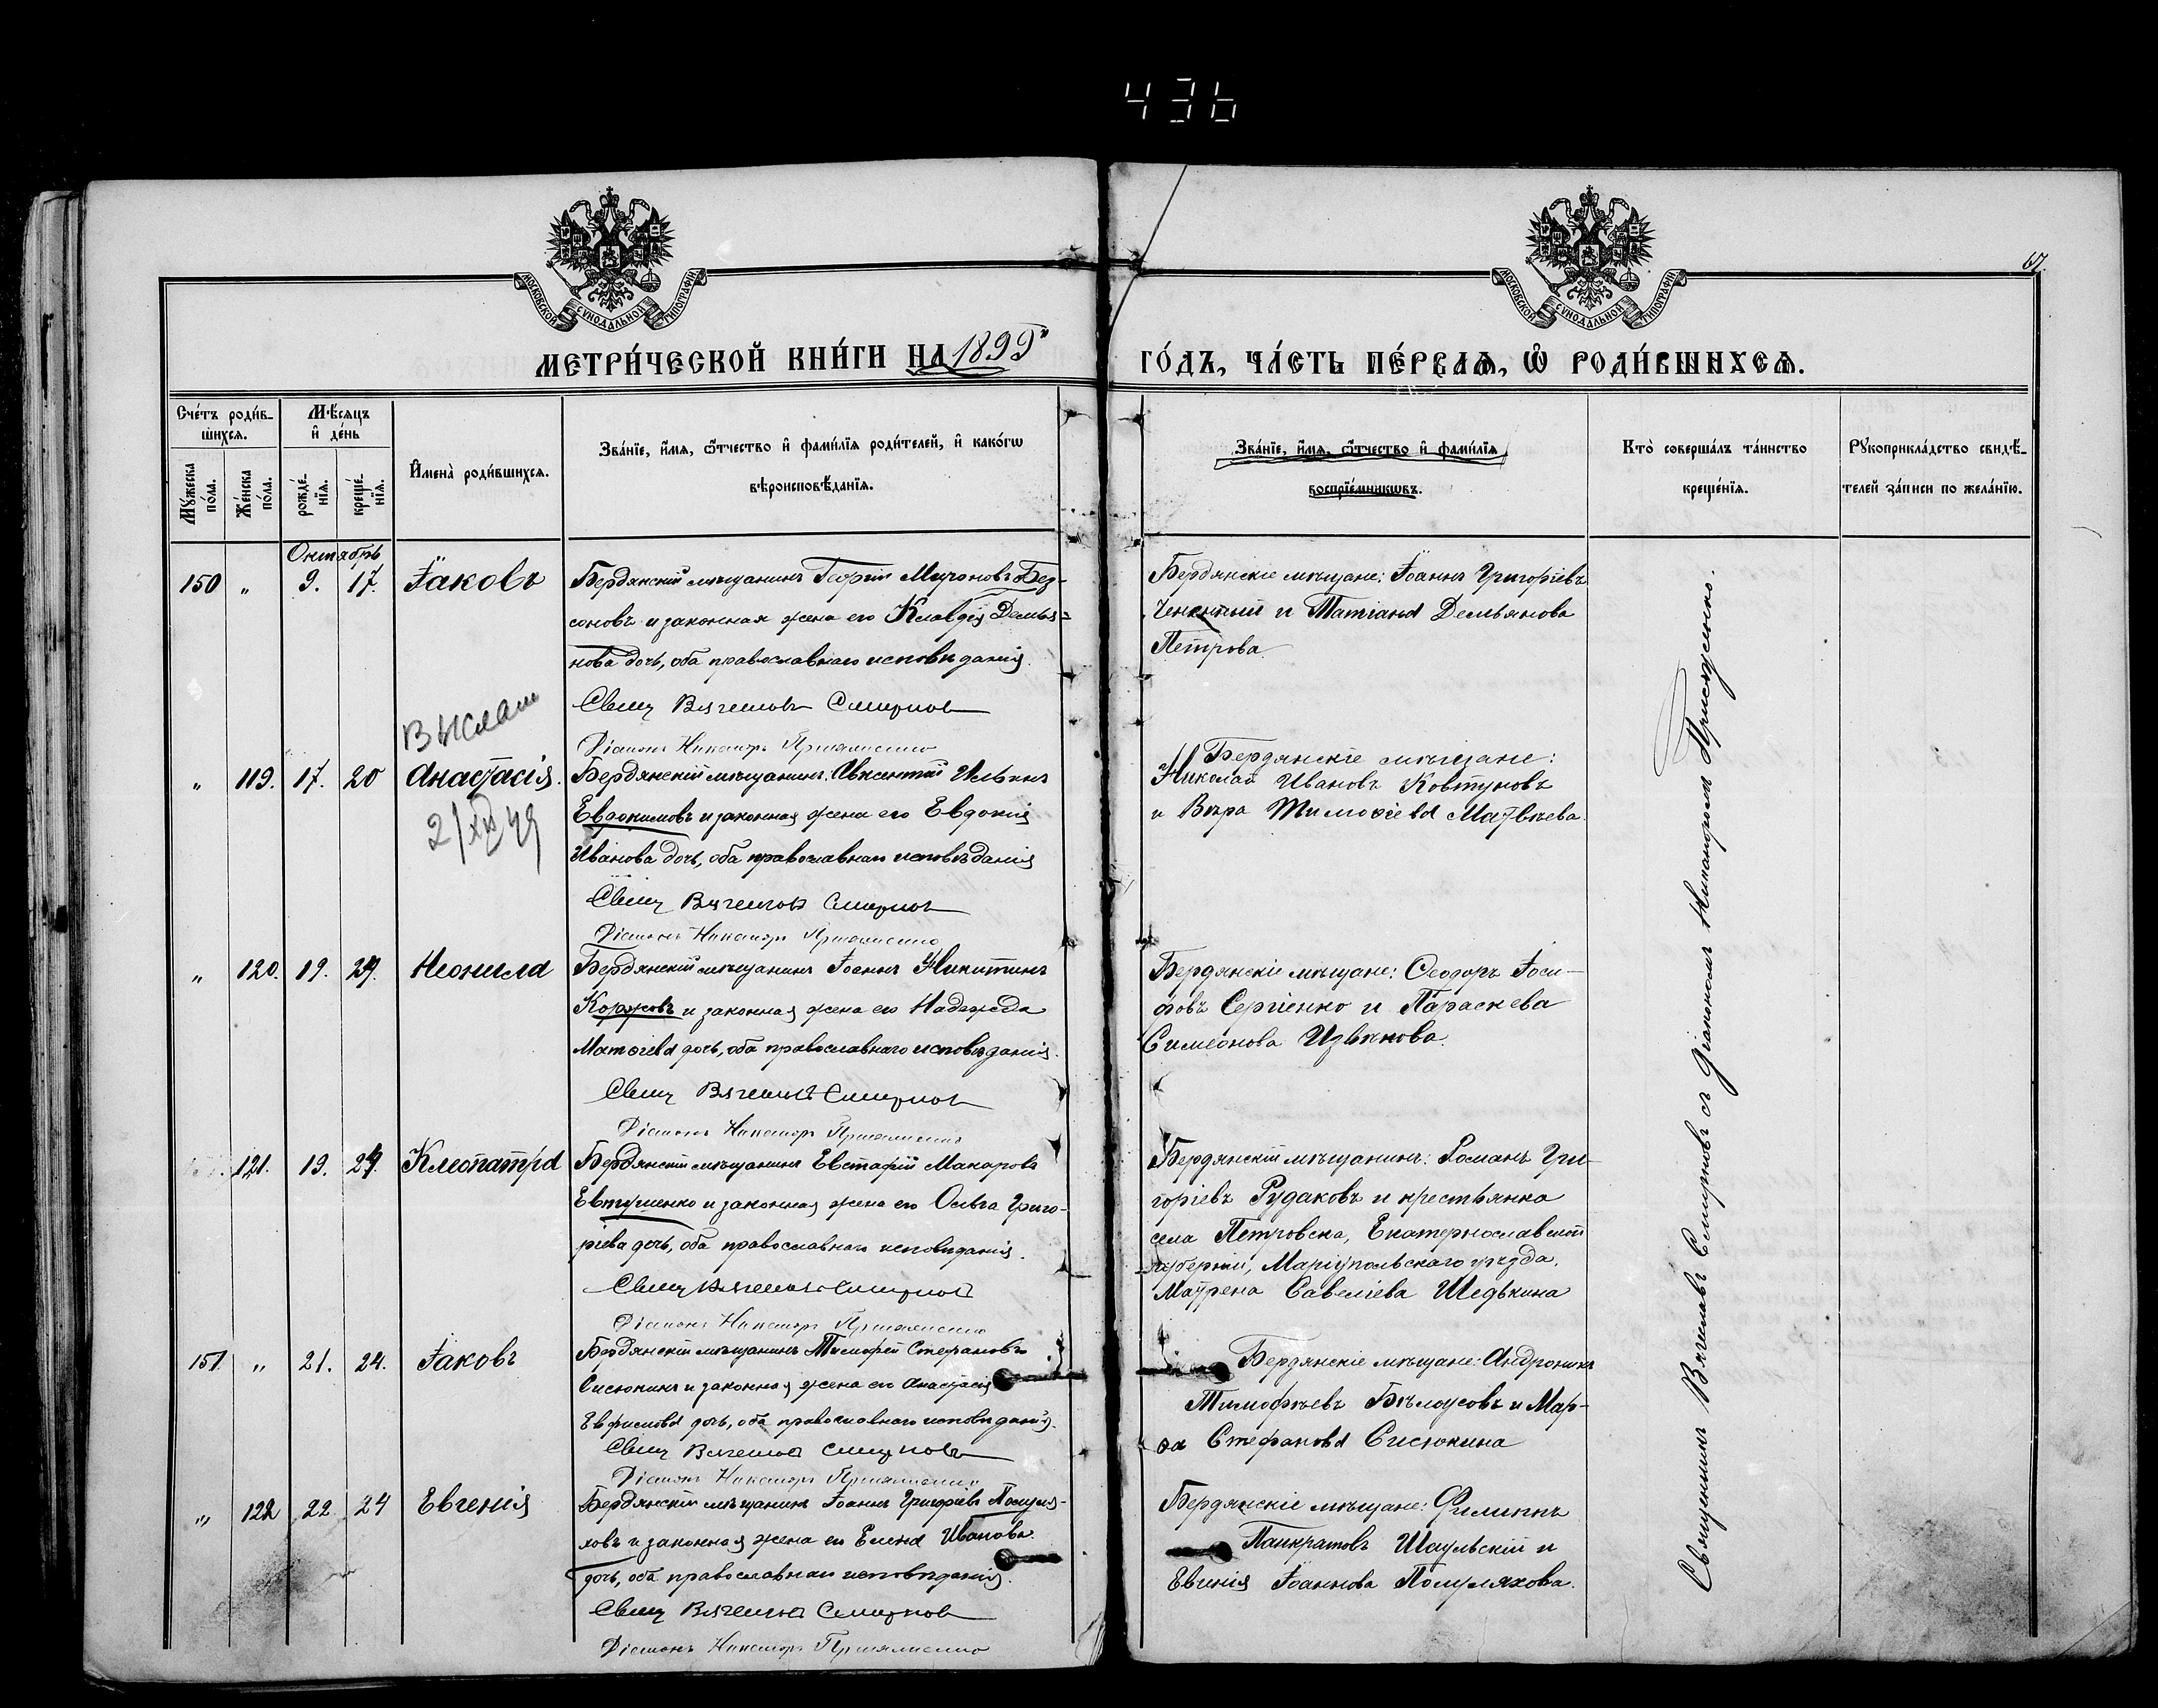 436
67.
МОСКОВСКОЙ СѴНОДАЛЬНОЙ ТИПОГРАФІИ
МОСКОВСКОЙ СѴНОДАЛЬНОЙ ТИПОГРАФІИ
МЕТРИ́ЧЕСКОЙ КНИ́ГИ НА 1899
ГО́ДЪ, ЧА́СТЬ ПЕ́РВАѦ, Ѡ҆ РОДИ́ВШИХСѦ.
Сче́тъ роди́в-
шихсѧ.
Мѣ́сѧцъ
и҆ де́нь
Мꙋ́жеска
по́ла.
Же́нска
по́ла.
рожде́-
нїѧ.
креще́-
нїѧ.
И҆мена̀ роди́вшихсѧ.
Зва́нїе, и҆́мѧ, ѻ҆́тчество и҆ фами́лїѧ роди́телей, и҆ како́гѡ
вѣроисповѣ́данїѧ.
Зва́нїе, и҆́мѧ, ѻ҆́тчество и҆ фами́лїѧ
воспрїе́мникѡвъ.
Кто̀ соверша́лъ та́инство
креще́нїѧ.
Рꙋкоприкла́дство свидѣ́-
телей за́писи по жела́нїю.
Октябрь
150 " 9. 17. Іаковъ
Бердянскій мѣщанинъ Георгій Мироновъ Без-
соновъ и законная жена его Клавдія Демья-
нова дочь, оба православнаго исповѣданія.
Свящ Вячеславъ Смирнов
Діаконъ Никаноръ
Бердянскіе мѣщане: Іоаннъ Григорьевъ
и Татіана Демьянова
Петрова
Выслан
2/XII 49
" 119. 17. 20 Анастасія.
Бердянскій мѣщанинъ Авксентій Ильинъ
Евдокимовъ и законная жена его Евдокія
Иванова дочь, оба православнаго исповѣданія
Свящ Вячеславъ Смирнов
Діаконъ Никаноръ
Бердянскіе мѣщане:
Николай Ивановъ Ковтуновъ
и Вѣра Тимоѳіева Матвѣева.
" 120. 19. 24. Неонила
Бердянскій мѣщанинъ Іоаннъ Никитинъ
Коржовъ и законная жена его Надежда
дочь, оба православнаго исповѣданія.
Свящ Вячеславъ Смирнов
Діаконъ Никаноръ
Бердянскіе мѣщане: Ѳеодоръ Іоси-
фовъ Сергіенко и Параскева
Симеонова Извѣкова.
121. 19. 24. Клеопатра
Бердянскій мѣщанинъ Евстафій Макаровъ
Евтушенко и законная жена его Ольга Григо-
рьева дочь, оба православнаго исповѣданія.
Свящ Вячеславъ Смирнов
Діаконъ Никаноръ
Бердянскій мѣщанинъ: Романъ Гри-
горіевъ Рудаковъ и крестьянка
села Петровска, Екатеринославской
губерніи, Маріупольскаго уѣзда,
Матрена Савеліева Шедькина
151. " 21. 24. Іаковъ
Бердянскій мѣщанинъ Тимофей Стефановъ
Сисюкинъ и законная жена его Анастасія
дочь, оба православнаго исповѣданія.
Свящ Вячеславъ Смирновъ
Діаконъ Никаноръ
Бердянскіе мѣщане: Андроникъ
Тимофѣевъ Бѣлоусовъ и Мар-
ѳа Стефанова Сисюкина
" 122 22. 24 Евгенія
Бердянскій мѣщанинъ Іоаннъ Григорьевъ Полуля-
ховъ и законная жена его Елена Иванова
дочь, оба православнаго исповѣданія.
Свящ Вячеславъ Смирнов
Діаконъ Никаноръ
Бердянскіе мѣщане: Филиппъ
Панкратовъ Шаульскій и
Евгенія Іоаннова Полуляхова.
Священникъ Вячеславъ Смирновъ съ діакономъ Никаноромъ